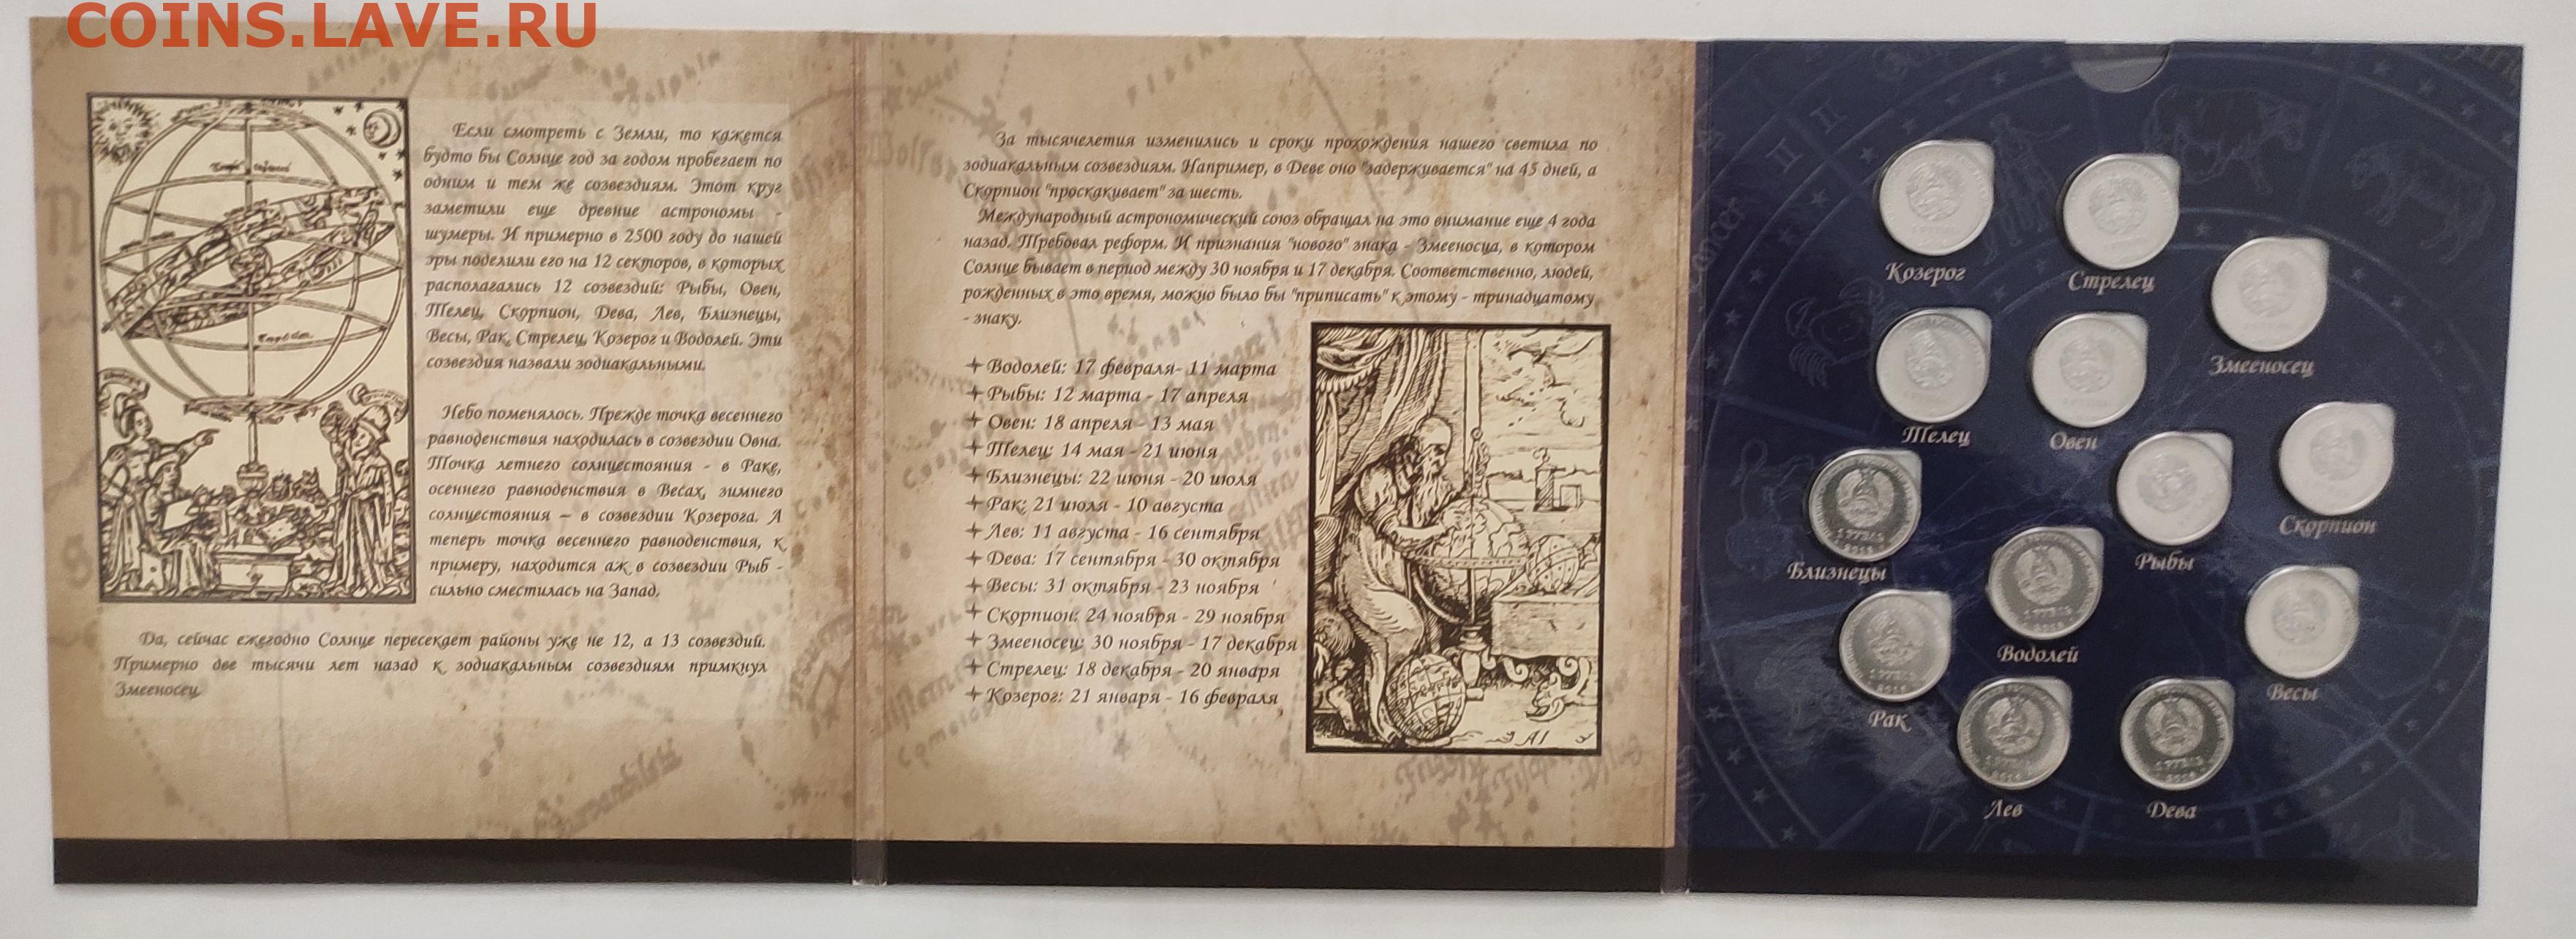 COINS.LAVE.RU
Если смотреть с Земли, то кажется
будто бы Солнце год за годом пробегает по
одним и тем же созвездиям. Этот круг
заметили еще древние астрономы -
шумеры. И примерно в 2500 году до нашей
эры поделили его на 12 секторов, в которых
располагались 12 созвездий: Рыбы, Овен,
Телец, Скорпион, Дева, Лев, Близнецы,
Весы, Рак, Стрелец, Козерог и Водолей. Эти
созвездия назвали зодиакальными.
Небо поменялось. Прежде точка весеннего
равноденствия находилась в созвездии Овна.
Точка летнего солнцестояния - в Раке,
осеннего равноденствия в Весах, зимнего
солнцестояния – в созвездии Козерога. А
теперь точка весеннего равноденствия, к
примеру, находится аж в созвездии Рыб -
сильно сместилась на Запад.
Да, сейчас ежегодно Солнце пересекает районы уже не 12, а 13 созвездий.
Примерно две тысячи лет назад к зодиакальным созвездиям примкнул
Змееносец
За тысячелетия изменились и сроки прохождения нашего светила по
зодиакальным созвездиям. Например, в Деве оно "задерживается" на 45 дней, а
Скорпион "проскакивает" за шесть.
Международный астрономический союз обращал на это внимание еще 4 года
назад. Требовал реформ. И признания "нового" знака - Змееносца, в котором
Солнце бывает в период между 30 ноября и 17 декабря. Соответственно, людей,
рожденных в это время, можно было бы "приписать" к этому - тринадцатому
- знаку.
Водолей: 17 февраля- 11 марта
Рыбы: 12 марта - 17 апреля
Овен: 18 апреля - 13 мая
Телец: 14 мая - 21 июня
Близнецы: 22 июня - 20 июля
Рак: 21 июля - 10 августа
Лев: 11 августа - 16 сентября
Дева: 17 сентября - 30 октября
Весы: 31 октября - 23 ноября
Скорпион: 24 ноября - 29 ноября
Змееносец: 30 ноября - 17 декабря
Стрелец: 18 декабря - 20 января
Козерог: 21 января - 16 февраля
Козерог
Стрелец
Змееносец
Телец
Овен
Скорпион
Близнецы
Рыбы
Водолей
Весы
Рак
Лев
Дева
1 РУБЛЬ
2016